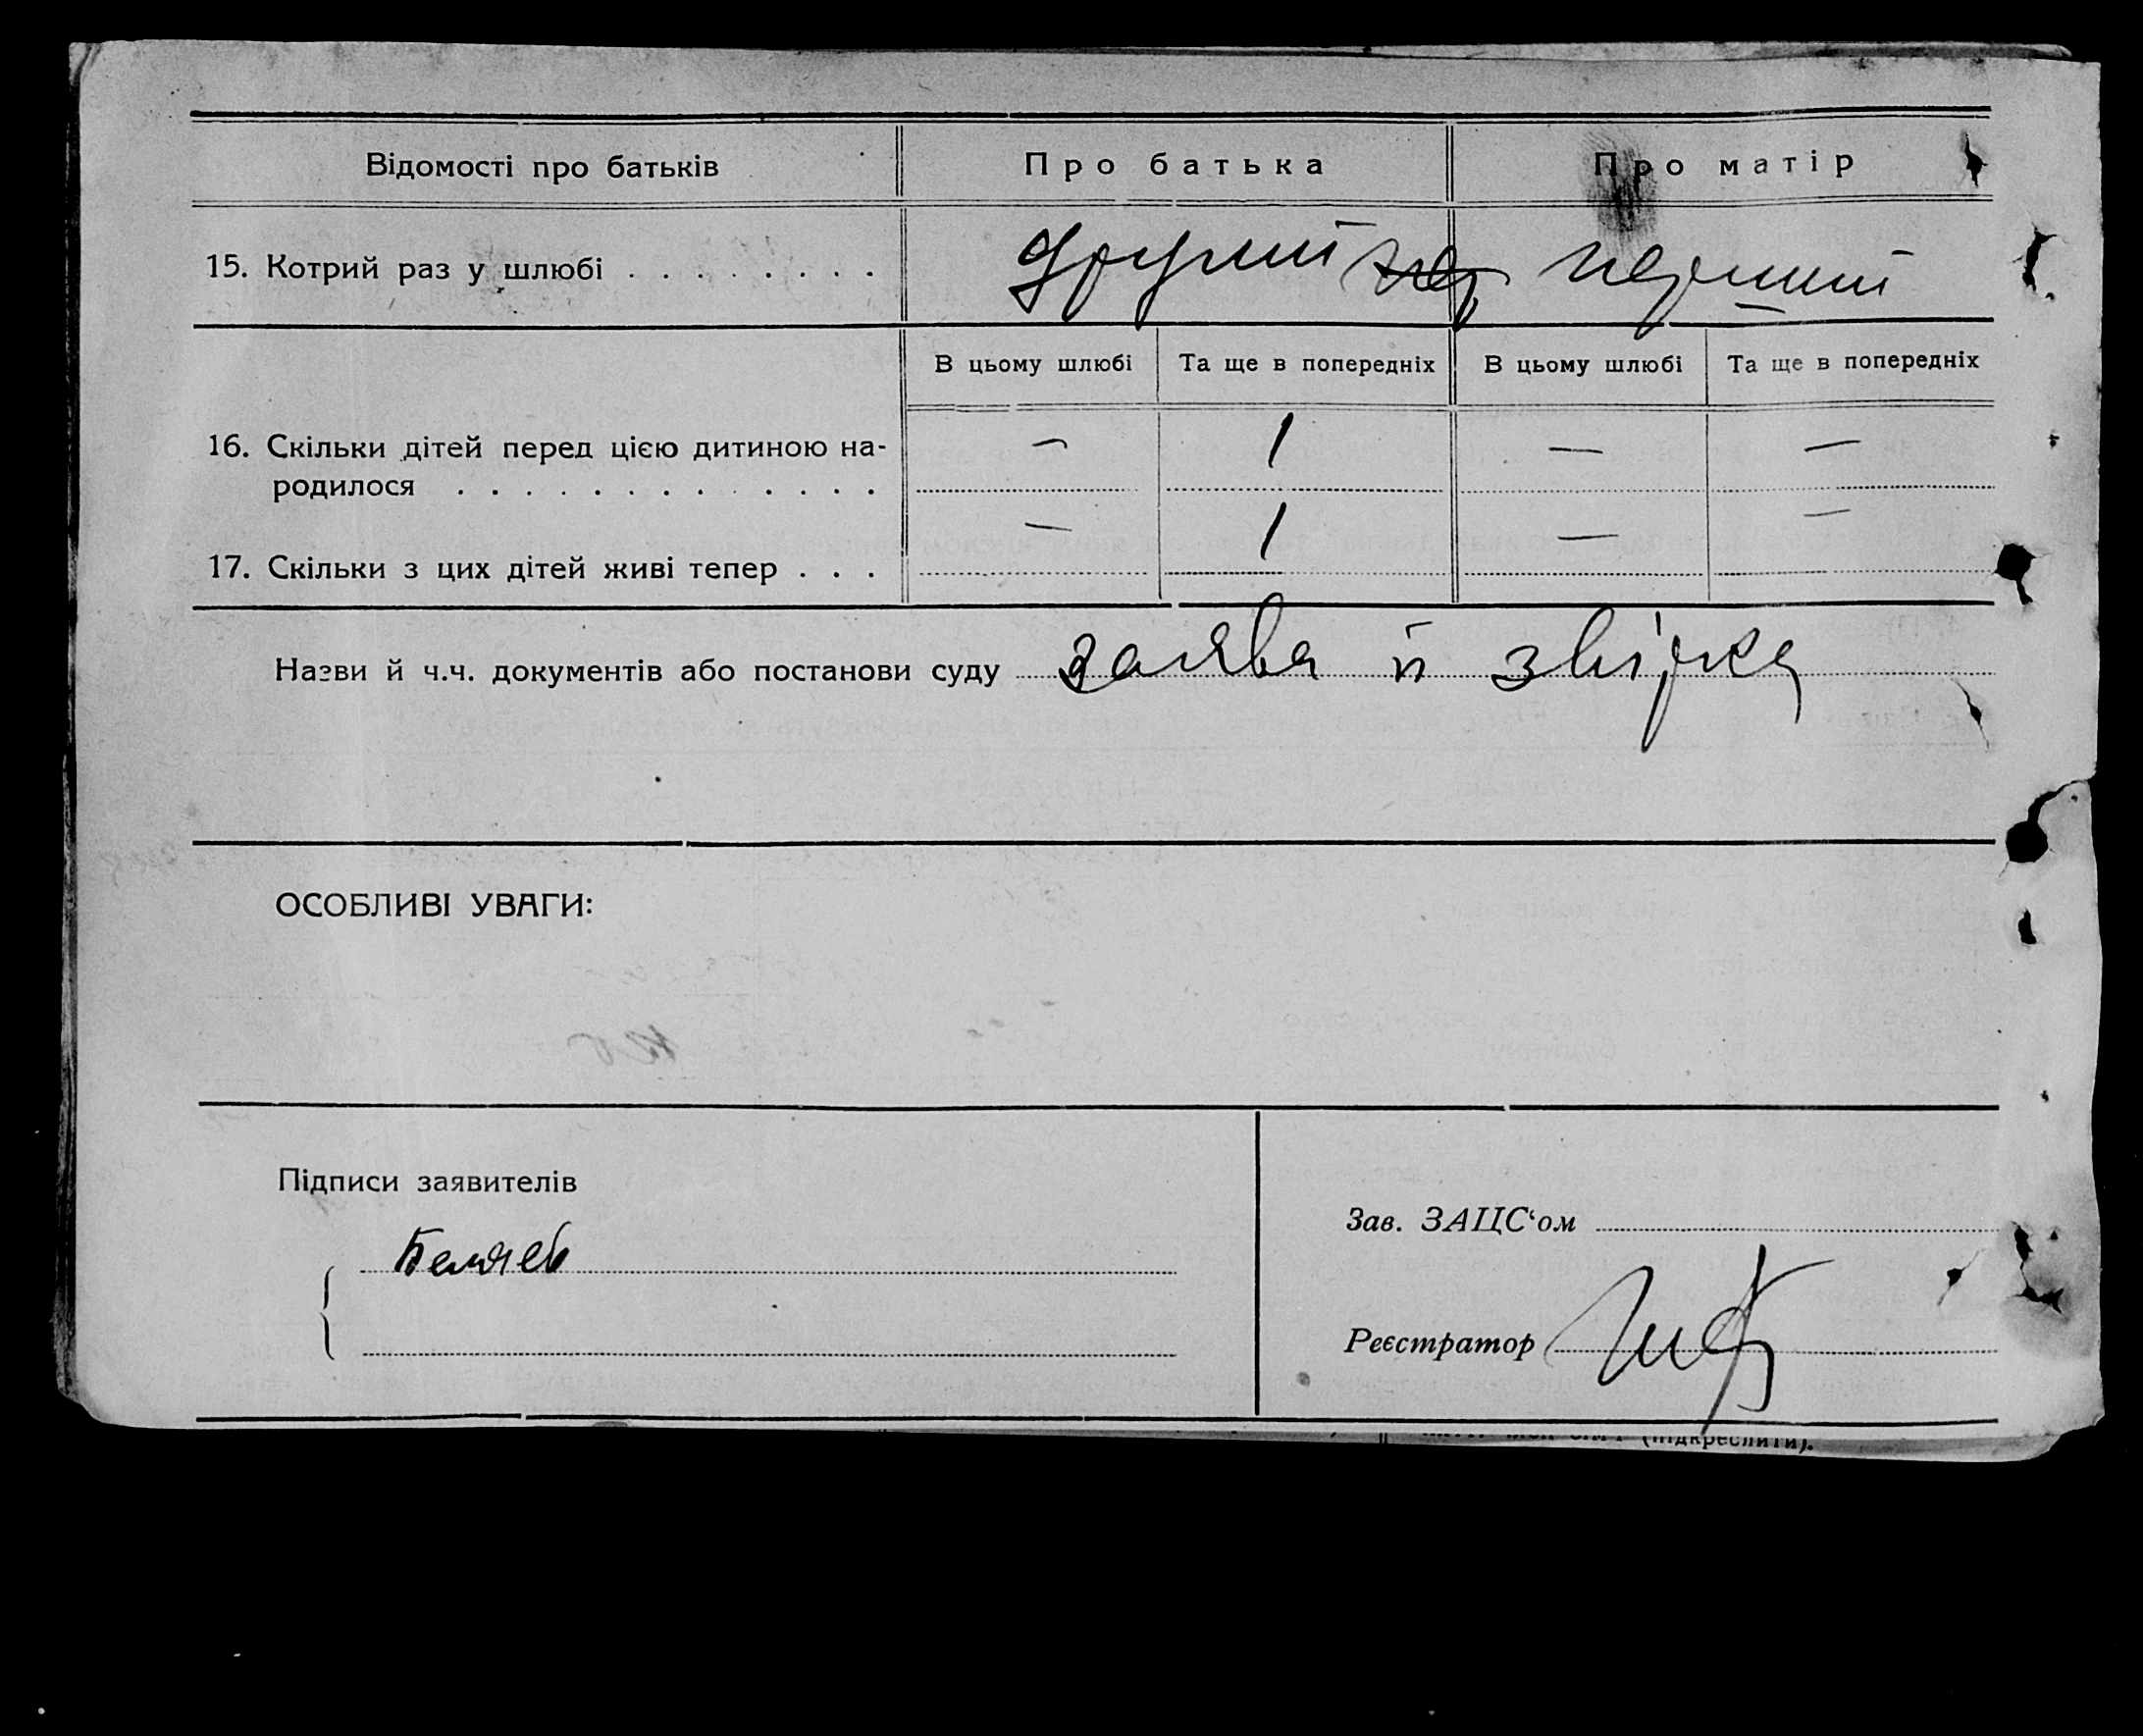 Відомості про батьків Про батька Про матір
15. Котрий раз у шлюбі . . . . . . . . другий перший
В цьому шлюбі Та ще в попередніх В цьому шлюбі Та ще в попередніх
16. Скільки дітей перед цією дитиною на- — 1 — —
родилося . . . . . . . . . . . . . .
17. Скільки з цих дітей живі тепер . . . — 1 — —
Назви й ч.ч. документів або постанови суду заява й звірка
ОСОБЛИВІ УВАГИ:
Підписи заявителів
Беляев
Зав. ЗАЦС‘ом
Реєстратор
(підкреслити).